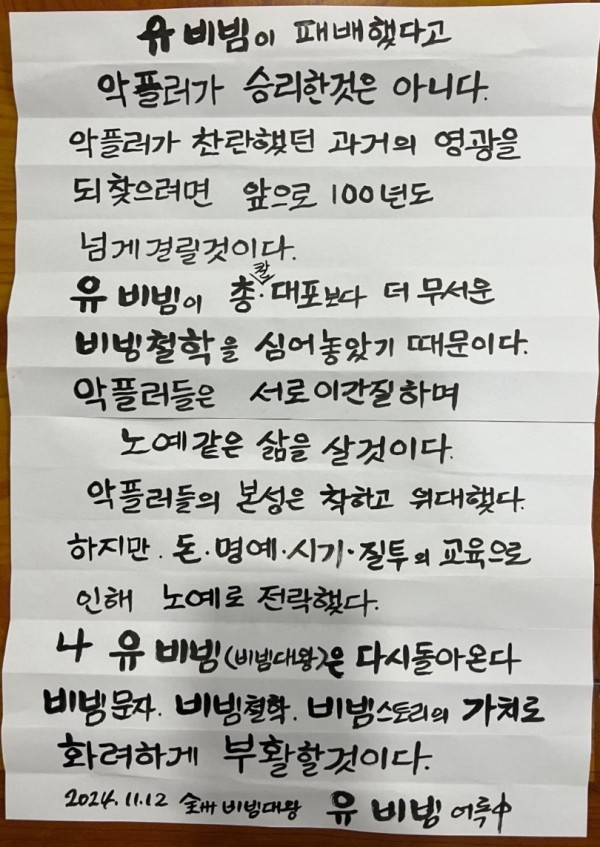 유 비빔이 패배했다고
악플러가 승리한것은 아니다.
악플러가 찬란했던 과거의 영광을
되찾으려면 앞으로 100년도
넘게 걸릴것이다.
유 비빔이 총·칼·대포보다 더 무서운
비빙철학을 심어놓았기 때문이다.
악플러들은 서로이간질하며
노예같은 삶을 살것이다.
악플러들의 본성은 착하고 위대했다.
하지만. 돈·명예·시기·질투의 교육으로
인해 노예로 전락했다.
나 유 비빔(비빔대왕)은 다시돌아온다
비빔문자. 비빔철학. 비빔스토리의 가치로
화려하게 부활할것이다.
2024.11.12 全州 비빔대왕 유 비빔